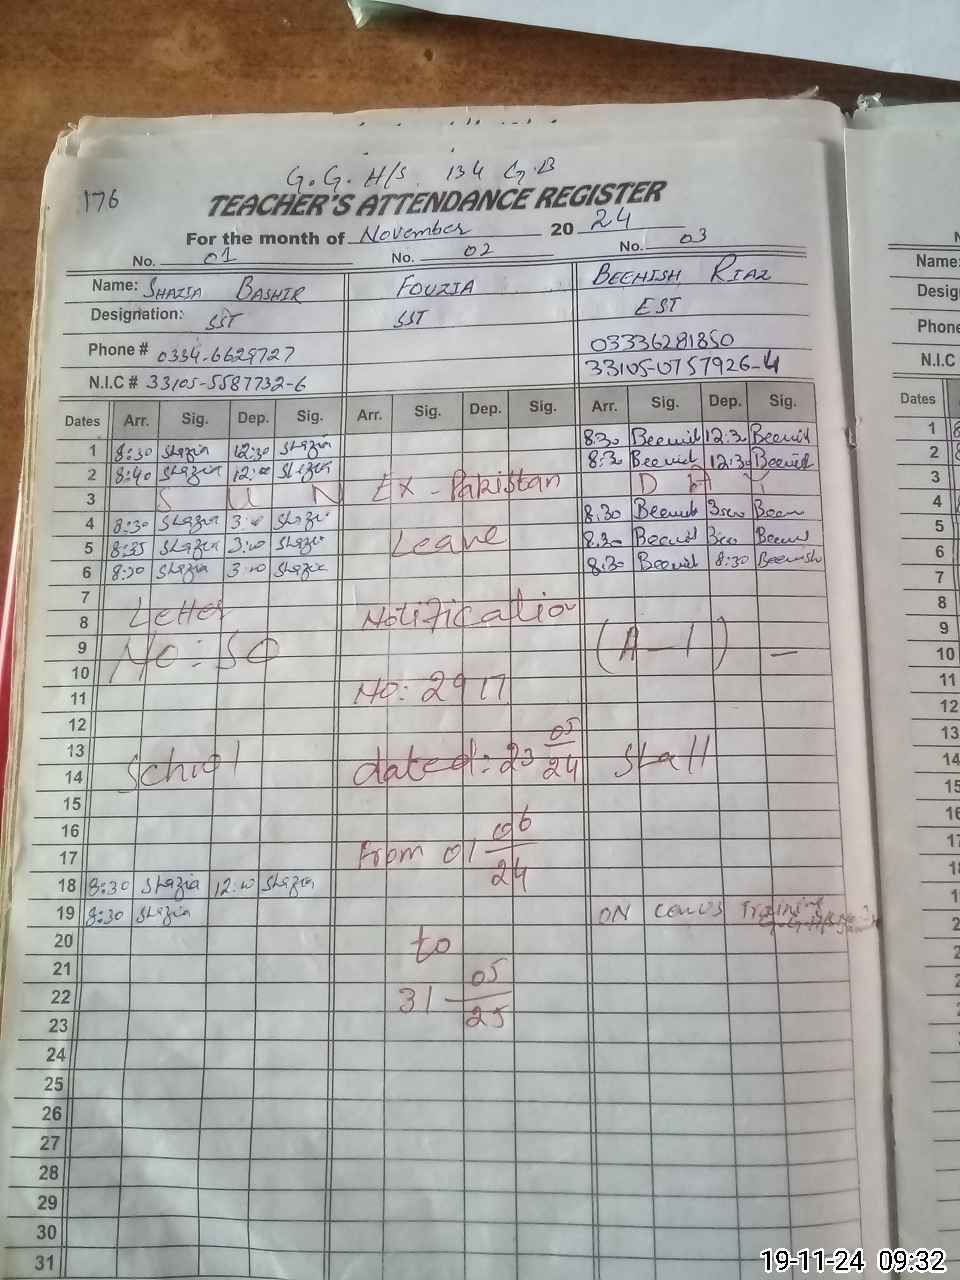 G.G.H/S 134 G.B
176
TEACHER'S ATTENDANCE REGISTER
For the month of November 2024
No. 01 No. 02 No. 03
Name: SHAZIA BASHIR FOUZIA BEENISH RIAZ
Designation: SST SST EST
Phone # 0334-6629727 03336281850
N.I.C # 33105-5587732-6 33105-0757926-4
Dates Arr. Sig. Dep. Sig. Arr. Sig. Dep. Sig. Arr. Sig. Dep. Sig.
1 8:30 Shazia 12:30 Shazia 8:30 Beenish 12:30 Beenish
2 8:40 Shazia 12:00 Shazia 8:30 Beenish 12:30 Beenish
3 S U N Ex-Pakistan D A Y
4 8:30 Shazia 3:00 Shazia 8.30 Beenish 3:00 Beenish
5 8:35 Shazia 3:10 Shazia Leave 8.30 Beenish 3:00 Beenish
6 8:30 Shazia 3:10 Shazia 8:30 Beenish 8:30 Beenish
7
8 Letter Notification
9 No:SO (A-1) -
10
11 No: 2917
12
13
14 School dated: 23 05/24 Staff
15
16
17 From 01 06/24
18 8:30 Shazia 12:10 Shazia
19 8:30 Shazia ON Training
20 to
21
22 31 - 05/25
23
24
25
26
27
28
29
30
31
Name:
Phone
N.I.C
Dates
1
2
3
4
5
6
7
8
9
10
11
12
13
14
19-11-24 09:32